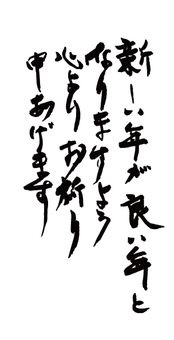 新しい年が良い年と
なりますよう
心よりお祈り
申しあげます